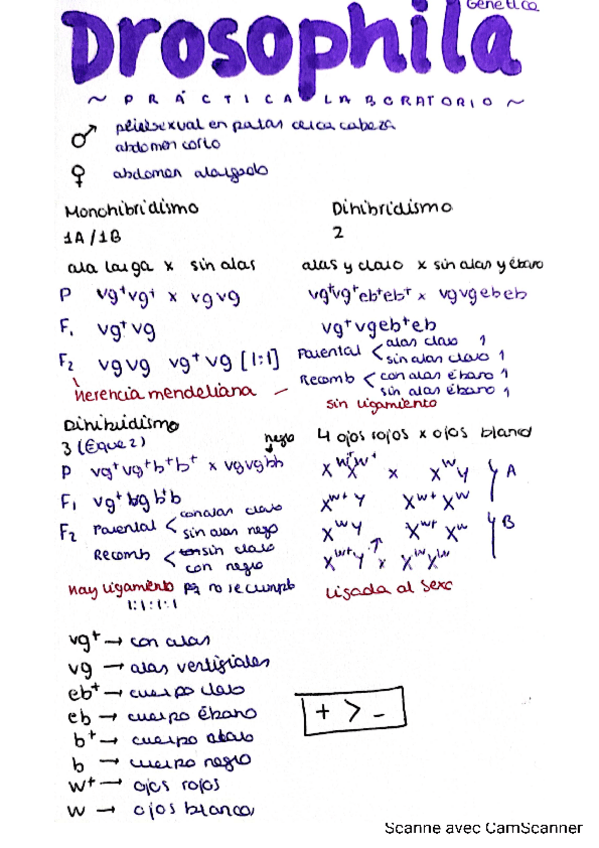 Genética
Drosophila
~ PRÁCTICA LABORATORIO ~
♂ peine sexual en patas cerca cabeza
abdomen corto
♀ abdomen alargado
Monohibridismo
1A/1B
ala larga x sin alas
P vg⁺vg⁺ x vgvg
F₁ vg⁺vg
F₂ vgvg vg⁺vg [1:1]
Herencia mendeliana
Dihibridismo
2
alas y claro x sin alas y ébano
vg⁺vg⁺eb⁺eb⁺ x vgvgebeb
vg⁺vgeb⁺eb
Parental < alas claro 1
sin alas claro 1
Recomb < con alas ébano 1
sin alas ébano 1
sin ligamiento
Dihibridismo
3 (Eque2)
negro
P vg⁺vg⁺b⁺b⁺ x vgvgbb
F₁ vg⁺vgb⁺b
F₂ Parental < con alas claro
sin alas negro
Recomb < sin claro
con negro
Hay ligamiento pq no se cumple
1:1:1:1
4 ojos rojos x ojos blanc
Xʷ⁺Xʷ⁺ x XʷY } A
Xʷ⁺Y Xʷ⁺Xʷ
XʷY Xʷ⁺Xʷ } B
Xʷ⁺Y x XʷXʷ
Ligada al sexo
vg⁺ → con alas
vg → alas vestigiales
eb⁺ → cuerpo claro
eb → cuerpo ébano
b⁺ → cuerpo
b → cuerpo negro
w⁺ → ojos rojos
w → ojos blanco
+ > -
Scanne avec CamScanner